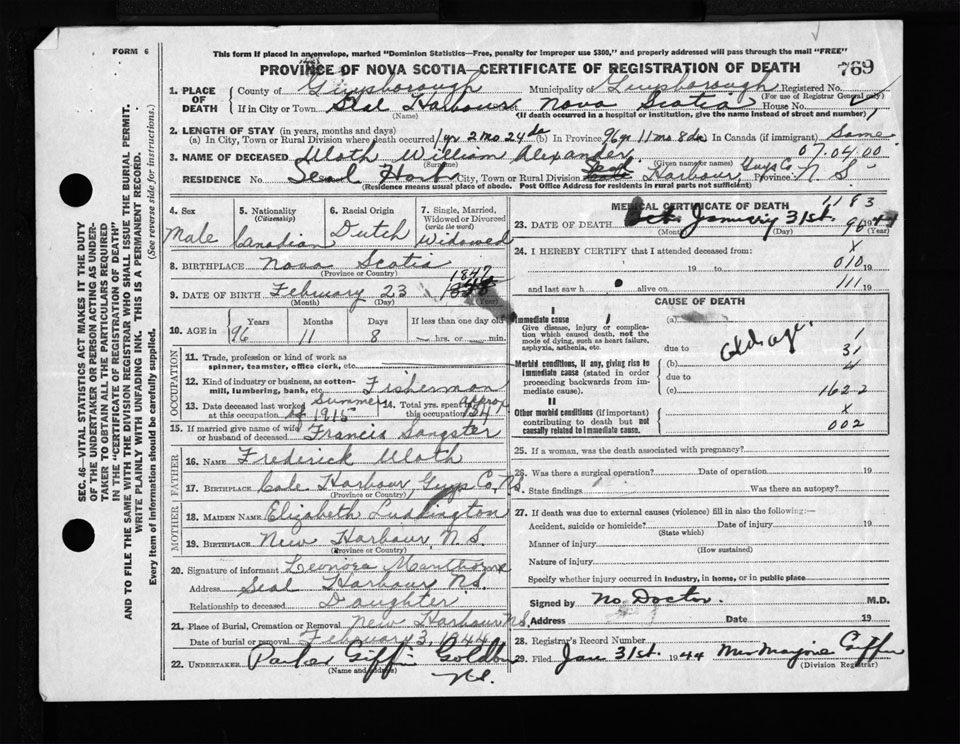 FORM 6
This form if placed in an envelope, marked "Dominion Statistics—Free, penalty for improper use $300," and properly addressed will pass through the mail "FREE"
PROVINCE OF NOVA SCOTIA—CERTIFICATE OF REGISTRATION OF DEATH
769
1. PLACE OF DEATH
County of Guysborough Municipality Guysborough Registered No.
(For use of Registrar General only)
If in City or Town Seal Harbour Nova Scotia House No.
(Name) (If death occurred in a hospital or institution, give the name instead of street and number)
2. LENGTH OF STAY (in years, months and days)
(a) In City, Town or Rural Division where death occurred 1 yr 2 mo 24 da (b) In Province 96 yr 11 mo 8 da In Canada (if immigrant) Same
07.04.00
3. NAME OF DECEASED Uloth William Alexander
(Surname) (Given name or names)
RESIDENCE No. Seal Harb City, Town or Rural Division Seal Harbour, Guys Co. Province N S
(Residence means usual place of abode. Post Office Address for residents in rural parts not sufficient)
4. Sex
Male
5. Nationality
(Citizenship)
Canadian
6. Racial Origin
Dutch
7. Single, Married, Widowed or Divorced
(write the word)
Widowed
8. BIRTHPLACE Nova Scotia
(Province or Country)
9. DATE OF BIRTH February 23 1847
(Month) (Day) (Year)
10. AGE in
Years Months Days If less than one day old
96 11 8 hrs. or min.
OCCUPATION
11. Trade, profession or kind of work as spinner, teamster, office clerk, etc.
12. Kind of industry or business, as cotton-mill, lumbering, bank, etc. Fisherman
13. Date deceased last worked at this occupation Summer of 1915
14. Total yrs. spent in this occupation approx
15. If married give name of wife or husband of deceased Francis Sangster
FATHER
16. NAME Frederick Uloth
17. BIRTHPLACE Cole Harbour, Guys Co, N.S.
(Province or Country)
MOTHER
18. MAIDEN NAME Elizabeth Luddington
19. BIRTHPLACE New Harbour, N.S.
(Province or Country)
20. Signature of informant Leonora Manthorne
Address Seal Harbour, N.S.
Relationship to deceased Daughter
21. Place of Burial, Cremation or Removal New Harbour N.S.
Date of burial or removal February 3, 1944
22. UNDERTAKER Parker Giffin Goldboro
(Name and Address)
N.S.
MEDICAL CERTIFICATE OF DEATH
1183
23. DATE OF DEATH January 31st. 1944
(Month) (Day) (Year)
96
24. I HEREBY CERTIFY that I attended deceased from:
X
19 to 010 19
and last saw h alive on 111 19
CAUSE OF DEATH
I
Immediate cause
Give disease, injury or complication which caused death, not the mode of dying, such as heart failure, asphyxia, asthenia, etc.
(a)
due to Old age
1
31
Morbid conditions, if any, giving rise to immediate cause (stated in order proceeding backwards from immediate).
(b)
4
due to
(c)
162-2
II
Other morbid conditions (if important) contributing to death but not causally related to immediate cause.
X
002
25. If a woman, was the death associated with pregnancy?
26. Was there a surgical operation? Date of operation 19
State findings Was there an autopsy?
27. If death was due to external causes (violence) fill in also the following:—
Accident, suicide or homicide? Date of injury 19
(State which)
Manner of injury
(How sustained)
Nature of injury
Specify whether injury occurred in industry, in home, or in public place
Signed by No Doctor. M.D.
Address Date 19
28. Registrar's Record Number
29. Filed Jan 31st. 1944 Mrs Marjorie Giffin
(Division Registrar)
SEC. 46—VITAL STATISTICS ACT MAKES IT THE DUTY
OF THE UNDERTAKER OR PERSON ACTING AS UNDER-
TAKER TO OBTAIN ALL THE PARTICULARS REQUIRED
IN THE "CERTIFICATE OF REGISTRATION OF DEATH"
AND TO FILE THE SAME WITH THE DIVISION REGISTRAR WHO SHALL ISSUE THE BURIAL PERMIT.
WRITE PLAINLY WITH UNFADING INK. THIS IS A PERMANENT RECORD.
Every item of information should be carefully supplied. (See reverse side for instructions.)